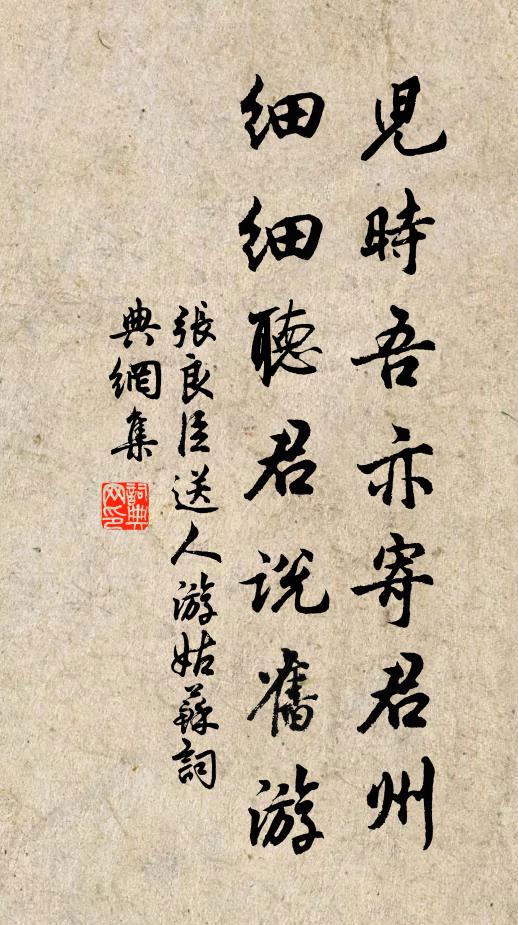 兒時吾亦寄君州
細細聽君説舊游
張良臣送人游姑蘇詞
典網集
詞典
网印